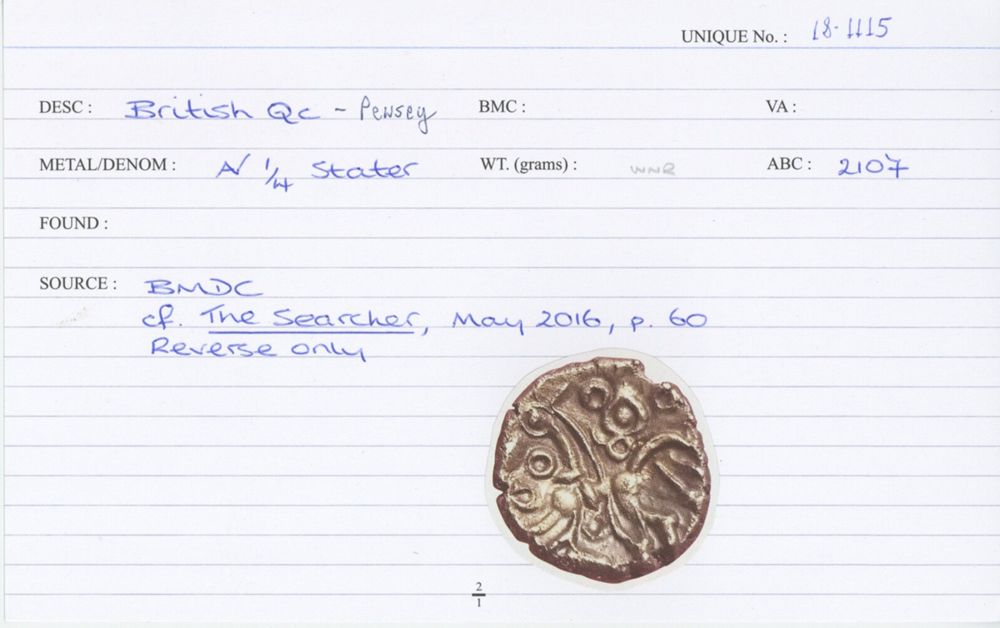 UNIQUE No. : 18-1115
DESC : British Qc - Pewsey BMC : VA :
METAL/DENOM : A/ 1/4 Stater WT. (grams) : WNR ABC : 2107
FOUND :
SOURCE : BMDC
cf. The Searcher, May 2016, p. 60
Reverse only
2/1